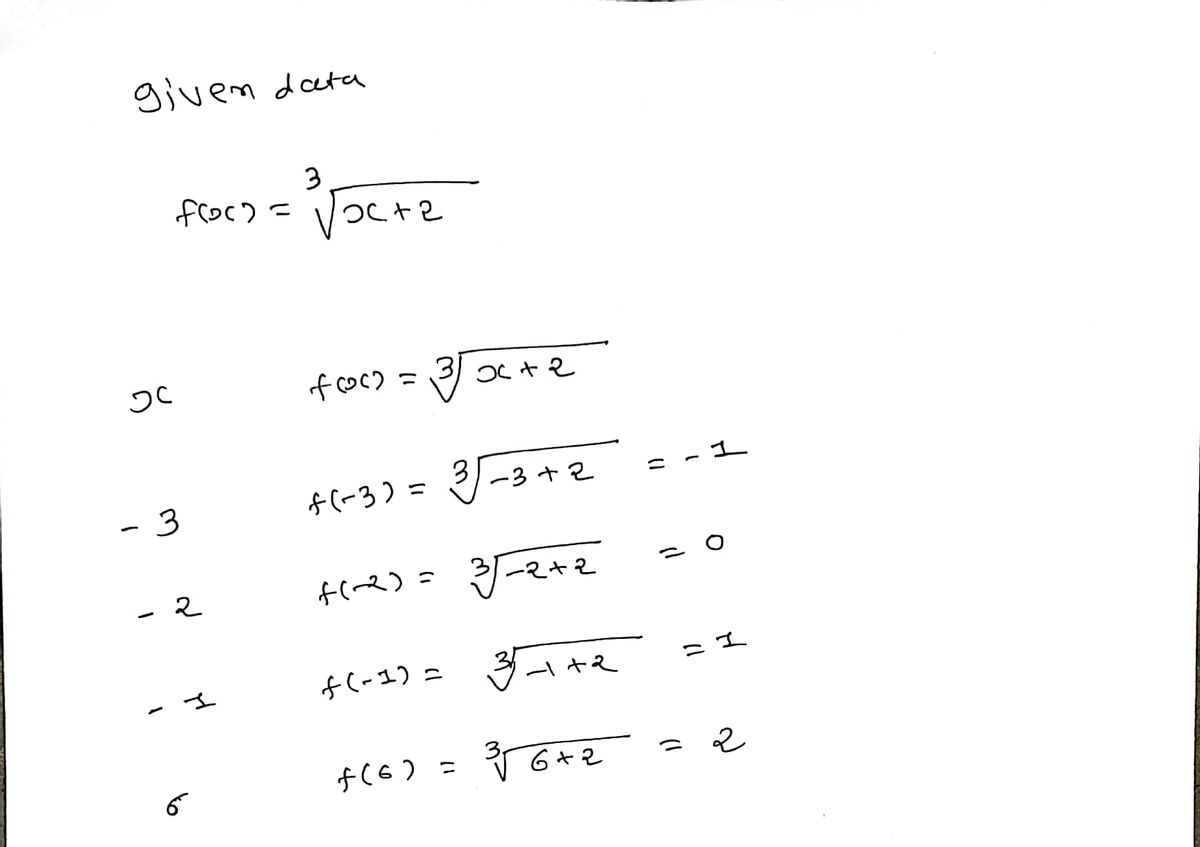 given data
f(x) = ∛x+2
x f(x) = ∛x+2
-3 f(-3) = ∛-3+2 = -1
-2 f(-2) = ∛-2+2 = 0
-1 f(-1) = ∛-1+2 = 1
6 f(6) = ∛6+2 = 2